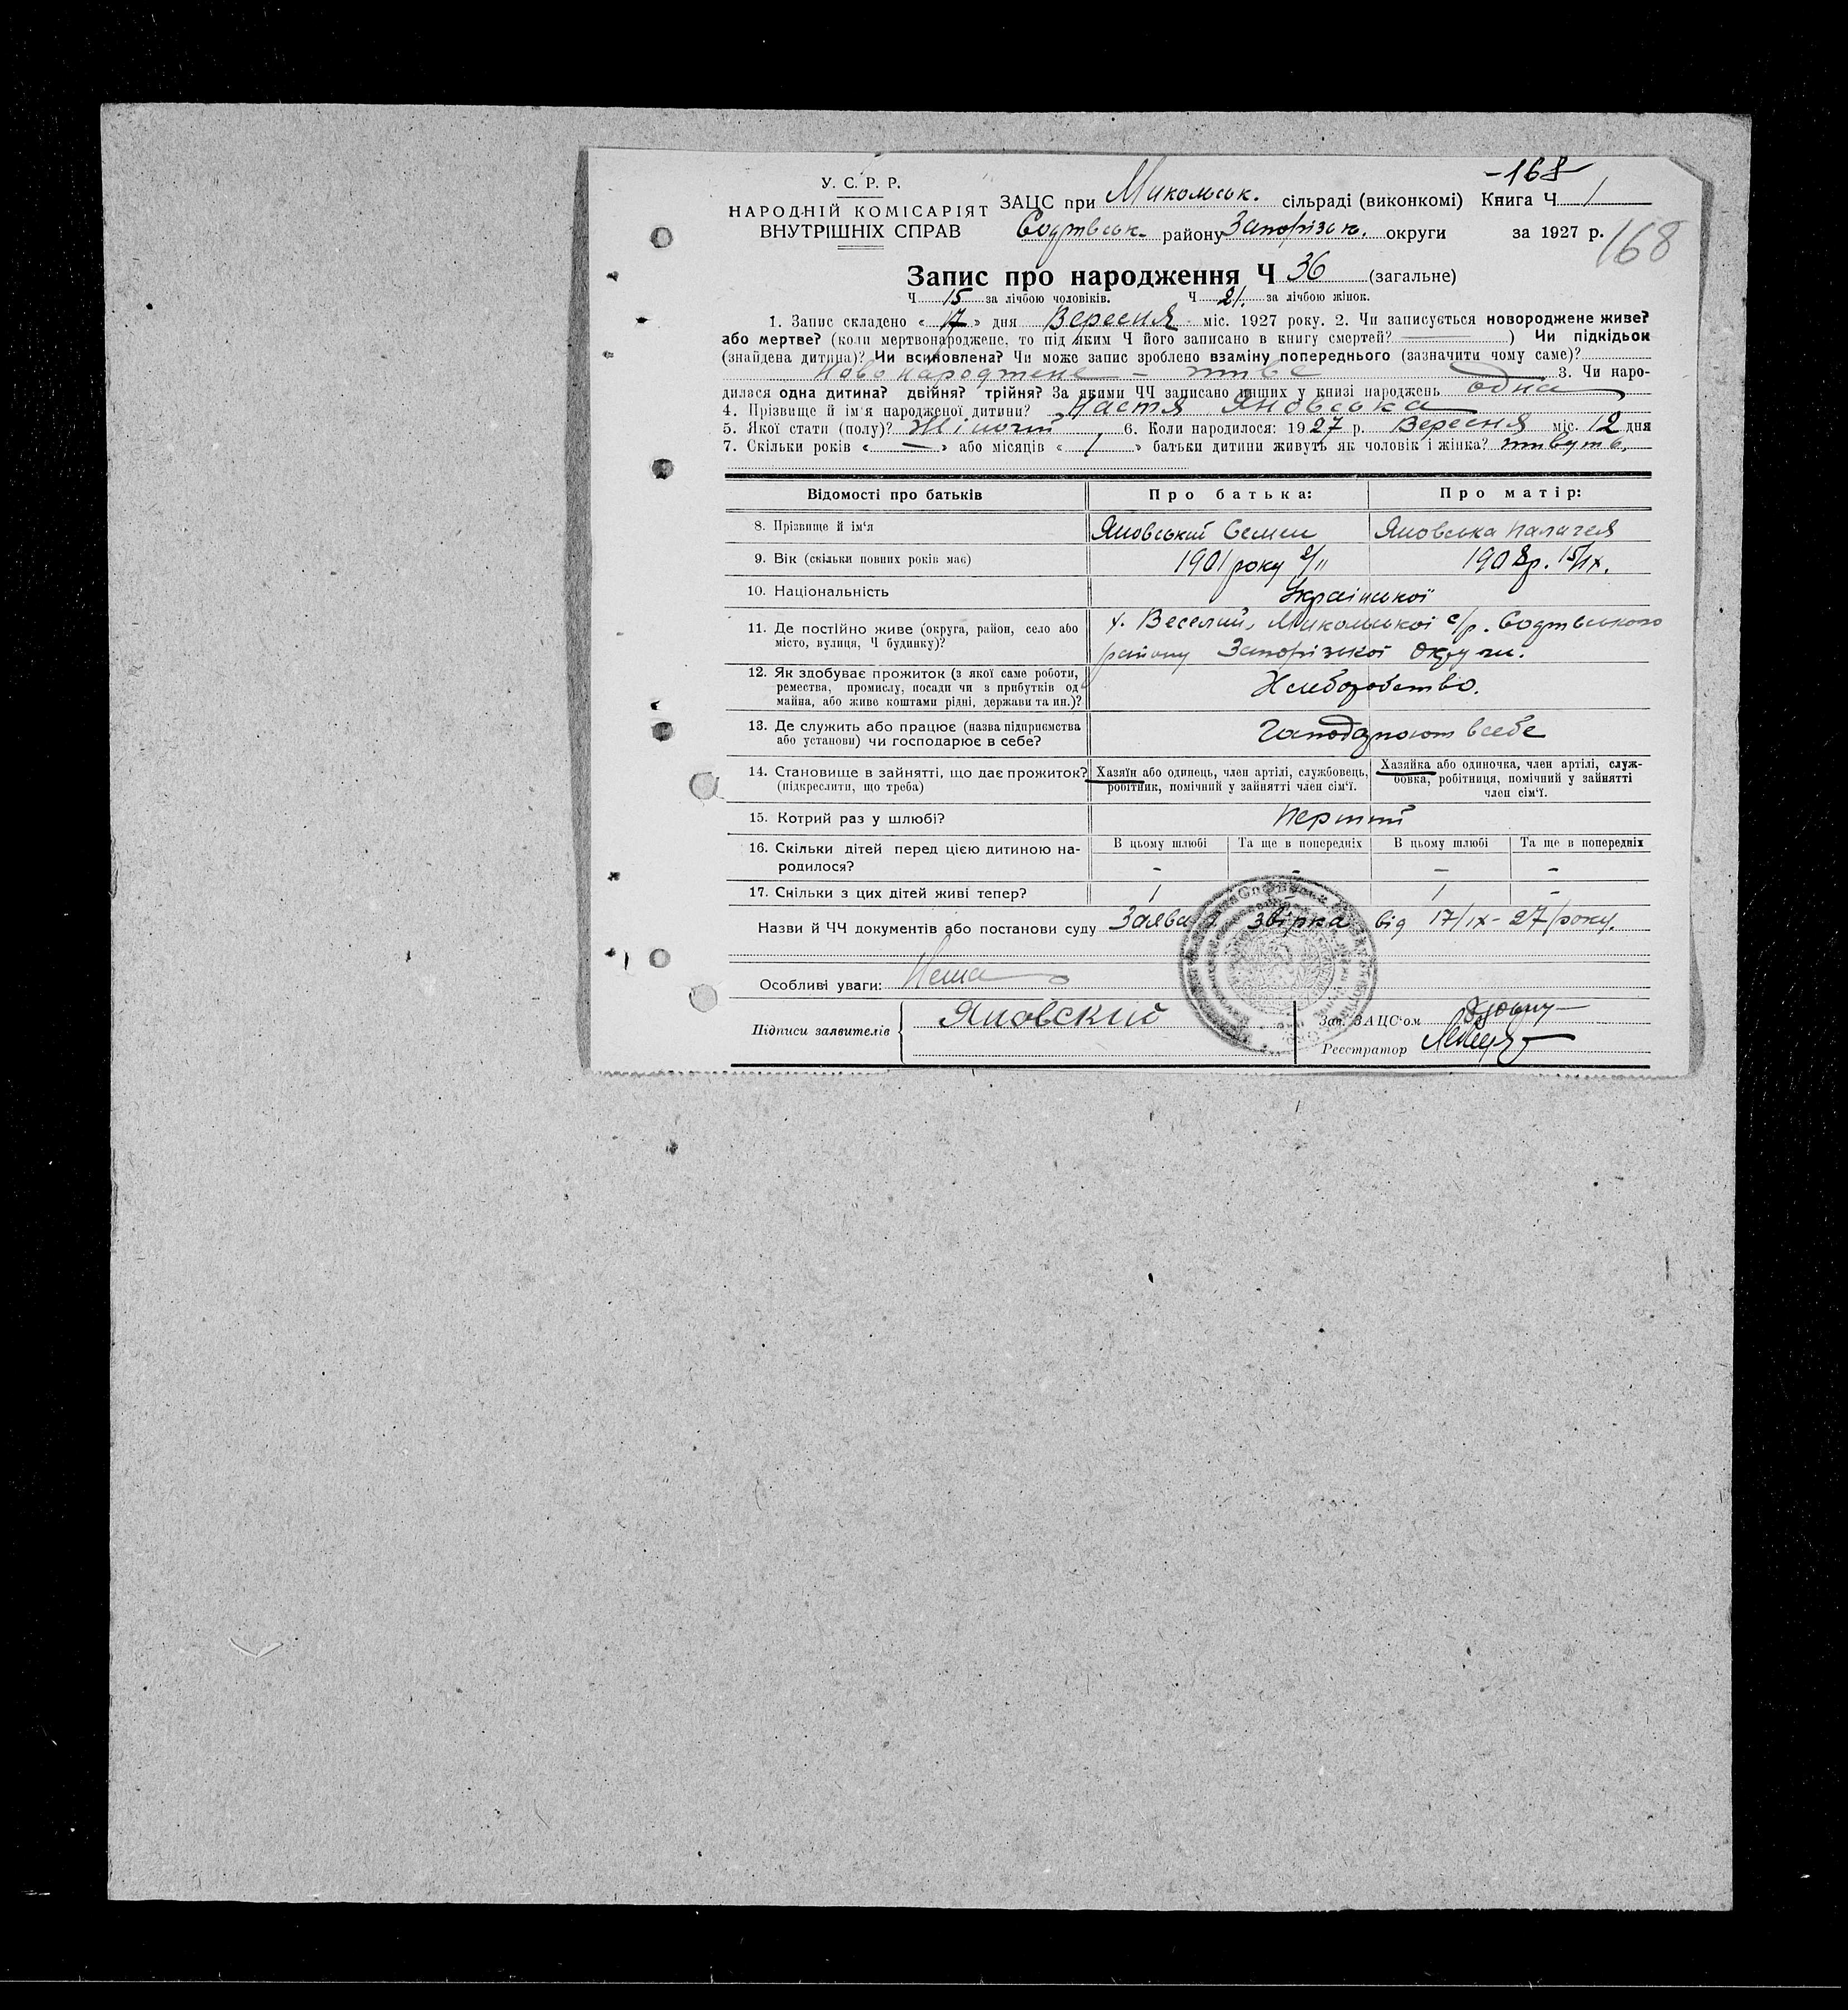 -168-
У. С. Р. Р.
НАРОДНІЙ КОМІСАРІЯТ
ВНУТРІШНІХ СПРАВ
ЗАЦС при Микольськ. сільраді (виконкомі) Книга Ч 1
району Запорізьк. округи за 1927 р.
168
Запис про народження Ч 36 (загальне)
Ч 15 за лічбою чоловіків. Ч 21. за лічбою жінок.
1. Запис складено « 17 » дня Вересня міс. 1927 року. 2. Чи записується новороджене живе?
або мертве? (коли мертвонароджене, то під яким Ч його записано в книгу смертей? —) Чи підкідьок
(знайдена дитина)? Чи всиновлена? Чи може запис зроблено взаміну попереднього (зазначити чому саме)?
Ново народжене — живе 3. Чи наро-
дилася одна дитина? двійня? трійня? За якими ЧЧ записано инших у книзі народжень одна
4. Прізвище й ім'я народженої дитини? Настя Яновська
5. Якої стати (полу)? Жіночий 6. Коли народилося: 1927 р. Вересня міс. 12 дня
7. Скільки років « — » або місяців « 1 » батьки дитини живуть як чоловік і жінка? живуть
Відомості про батьків Про батька: Про матір:
8. Прізвище й ім'я Яновський Семен Яновська Палагея
9. Вік (скільки повних років має) 1901 року 2/II 1908 р. 15/IX.
10. Національність Української
11. Де постійно живе (округа, район, село або
місто, вулиця, Ч будинку)?
х. Веселий, Микольської с/р.
району Запорізької округи.
12. Як здобуває прожиток (з якої саме роботи,
ремества, промислу, посади чи з прибутків од
майна, або живе коштами рідні, держави та ин.)?
Хлеборобство.
13. Де служить або працює (назва підприємства
або установи) чи господарює в себе?
Господарюют в себе
14. Становище в зайнятті, що дає прожиток?
(підкреслити, що треба)
Хазяїн або одинець, член артілі, службовець,
робітник, помічний у зайнятті член сім'ї.
Хазяйка або одиночка, член артілі, служ-
бовка, робітниця, помічний у зайнятті
член сім'ї.
15. Котрий раз у шлюбі? Перший
16. Скільки дітей перед цією дитиною на-
родилося?
В цьому шлюбі Та ще в попередніх В цьому шлюбі Та ще в попередніх
- - - -
17. Скільки з цих дітей живі тепер? 1 1 -
Назви й ЧЧ документів або постанови суду Заява звірка від 17/IX - 27 року.
Особливі уваги: Нема
Підписи заявителів Яновский
Зав. ЗАЦС'ом
Реєстратор